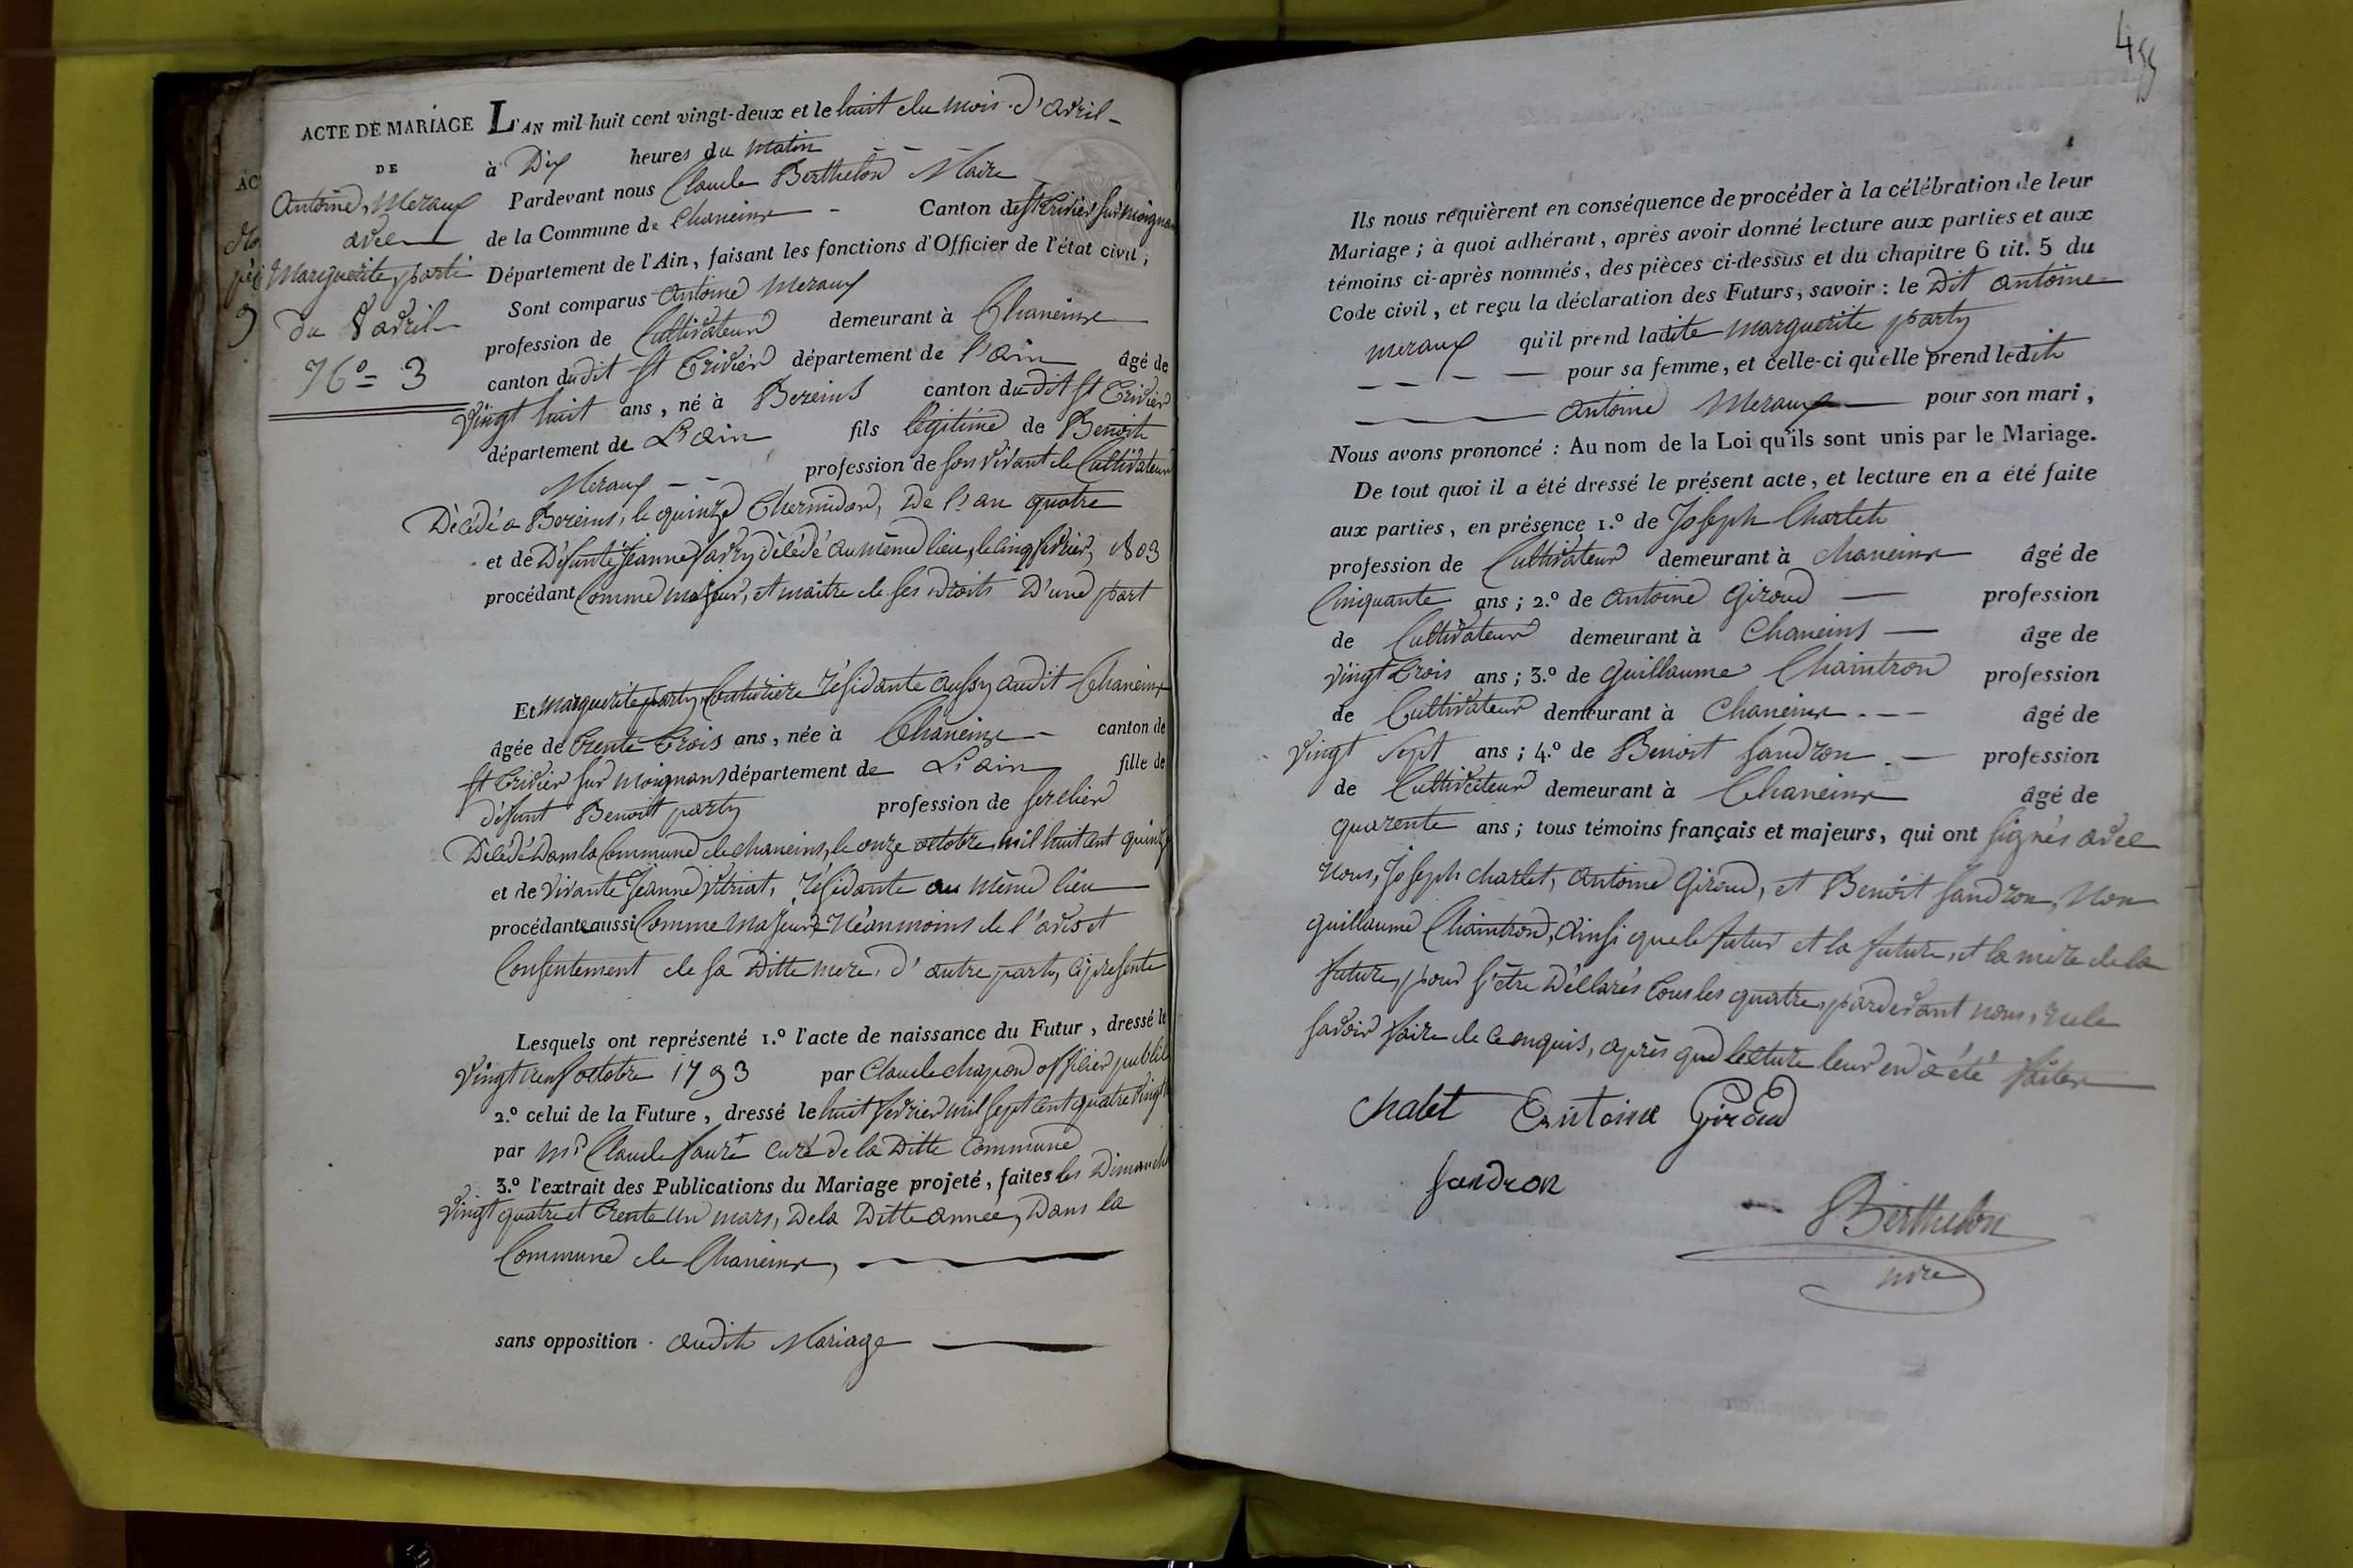 ACTE DE MARIAGE
DE
Antoine Meraux
avec
Marguerite parti
du 8 avril
N.º 3
L'AN mil huit cent vingt-deux et le huit du mois d'avril
à Dix heures du matin
Pardevant nous Claude Berthelon Maire
de la Commune de Chaneins Canton de St Trivier sur moignans
Département de l'Ain, faisant les fonctions d'Officier de l'état civil,
Sont comparus Antoine Meraux
profession de Cultivateur demeurant à Chaneins
canton dudit St Trivier département de l'ain âgé de
Vingt huit ans, né à Bereins canton dudit St Trivier
département de L'ain fils légitime de Benoit
Meraux profession de son vivant de Cultivateur
Décédé a Bereins, le quinze Thermidor, De l'an quatre
et de Défunte Jeanne Savry décédé au même lieu, le cinq fevrier, 1803
procédant Comme majeur, et maître de ses droits D'une part
Et marguerite party, Couturiere résidante aussy audit Chaneins
âgée de Trente Trois ans, née à Chaneins canton de
St Trivier sur moignans département de L'ain fille de
défunt Benoitt party profession de serclier
Décédé Dans la Commune de chaneins, le onze octobre mil huit cent quinze
et de vivante Jeanne Vitriat, résidante au même lieu
procédante aussi Comme majeure Néanmoins de l'avis et
Consentement de sa Ditte mere, d'autre part, cy presente
Lesquels ont représenté 1.º l'acte de naissance du Futur, dressé le
Vingt neuf octobre 1793 par Claude chapon officier public
2.º celui de la Future, dressé le huit fevrier mil sept cent quatre vingt
par Mr Claude faure curé de la Ditte Commune
3.º l'extrait des Publications du Mariage projeté, faites les Dimanche
Vingt quatre et Trente un mars, De la Ditte année, Dans la
Commune de Chaneins,
sans opposition audit Mariage
Ils nous requièrent en conséquence de procéder à la célébration de leur
Mariage; à quoi adhérant, après avoir donné lecture aux parties et aux
témoins ci-après nommés, des pièces ci-dessus et du chapitre 6 tit. 5 du
Code civil, et reçu la déclaration des Futurs, savoir: le Dit antoine
meraux qu'il prend ladite marguerite party
pour sa femme, et celle-ci qu'elle prend ledit
antoine Meraux pour son mari,
Nous avons prononcé: Au nom de la Loi qu'ils sont unis par le Mariage.
De tout quoi il a été dressé le présent acte, et lecture en a été faite
aux parties, en présence 1.º de Joseph Charlet
profession de Cultivateur demeurant à chaneins âgé de
Cinquante ans; 2.º de antoine Giroud profession
de Cultivateur demeurant à Chaneins âge de
vingt trois ans; 3.º de Guillaume Chaintron profession
de Cultivateur demeurant à Chaneins âgé de
Vingt sept ans; 4.º de Benoit Sandron profession
de Cultivateur demeurant à Chaneins âgé de
quarente ans; tous témoins français et majeurs, qui ont signés avec
nous, Joseph charlet, antoine Giroud, et Benoit Sandron, Non
Guillaume Chaintron, ainsi que le futur et la future, et la mère de la
future, pour s'être Déclarés Tous les quatre, pardevant nous, ne le
savoir faire de ce enquis, après que lecture leur en a été faite
Chalet Antoine Giroud
Sandron
Berthelon
mre